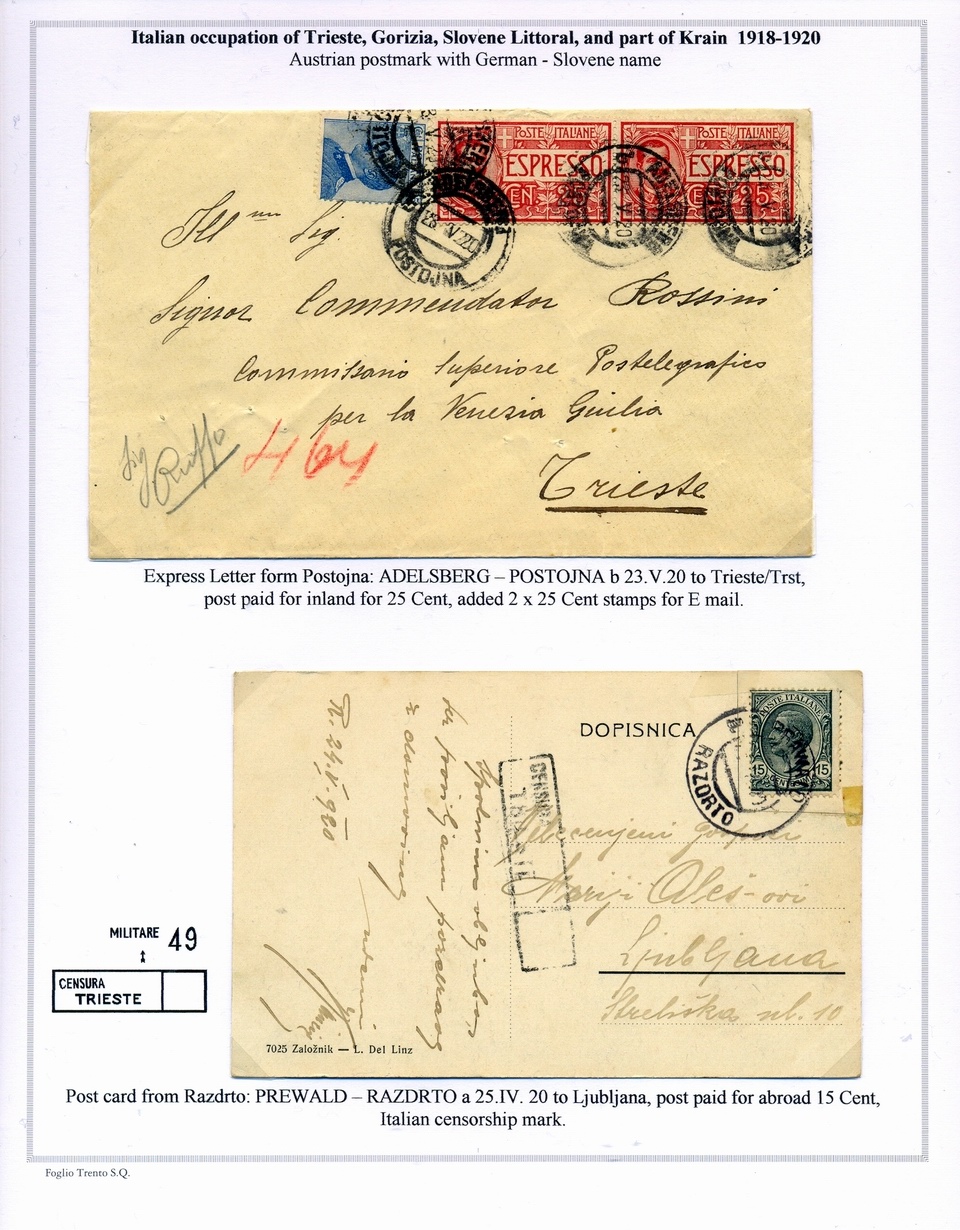 Italian occupation of Trieste, Gorizia, Slovene Littoral, and part of Krain 1918-1920
Austrian postmark with German - Slovene name
POSTE ITALIANE
ESPRESSO
CEN. 25
POSTE ITALIANE
ESPRESSO
CEN. 25
ADELSBERG
23 V 20
POSTOJNA
Ill mo Sig.
Signor Commendator Rossini
Commissario Superiore Postelegrafico
per la Venezia Giulia
Trieste
Sig
Ruffo
464
Express Letter form Postojna: ADELSBERG – POSTOJNA b 23.V.20 to Trieste/Trst,
post paid for inland for 25 Cent, added 2 x 25 Cent stamps for E mail.
DOPISNICA
POSTE ITALIANE
15 CENTESIMI 15
a
RAZDRTO
CENSURA
TRIESTE
gospici
Mariji Oleš-ovi
Ljubljana
Streliška ul. 10
7025 Založnik — L. Del Linz
MILITARE 49
CENSURA
TRIESTE
Post card from Razdrto: PREWALD – RAZDRTO a 25.IV. 20 to Ljubljana, post paid for abroad 15 Cent,
Italian censorship mark.
Foglio Trento S.Q.